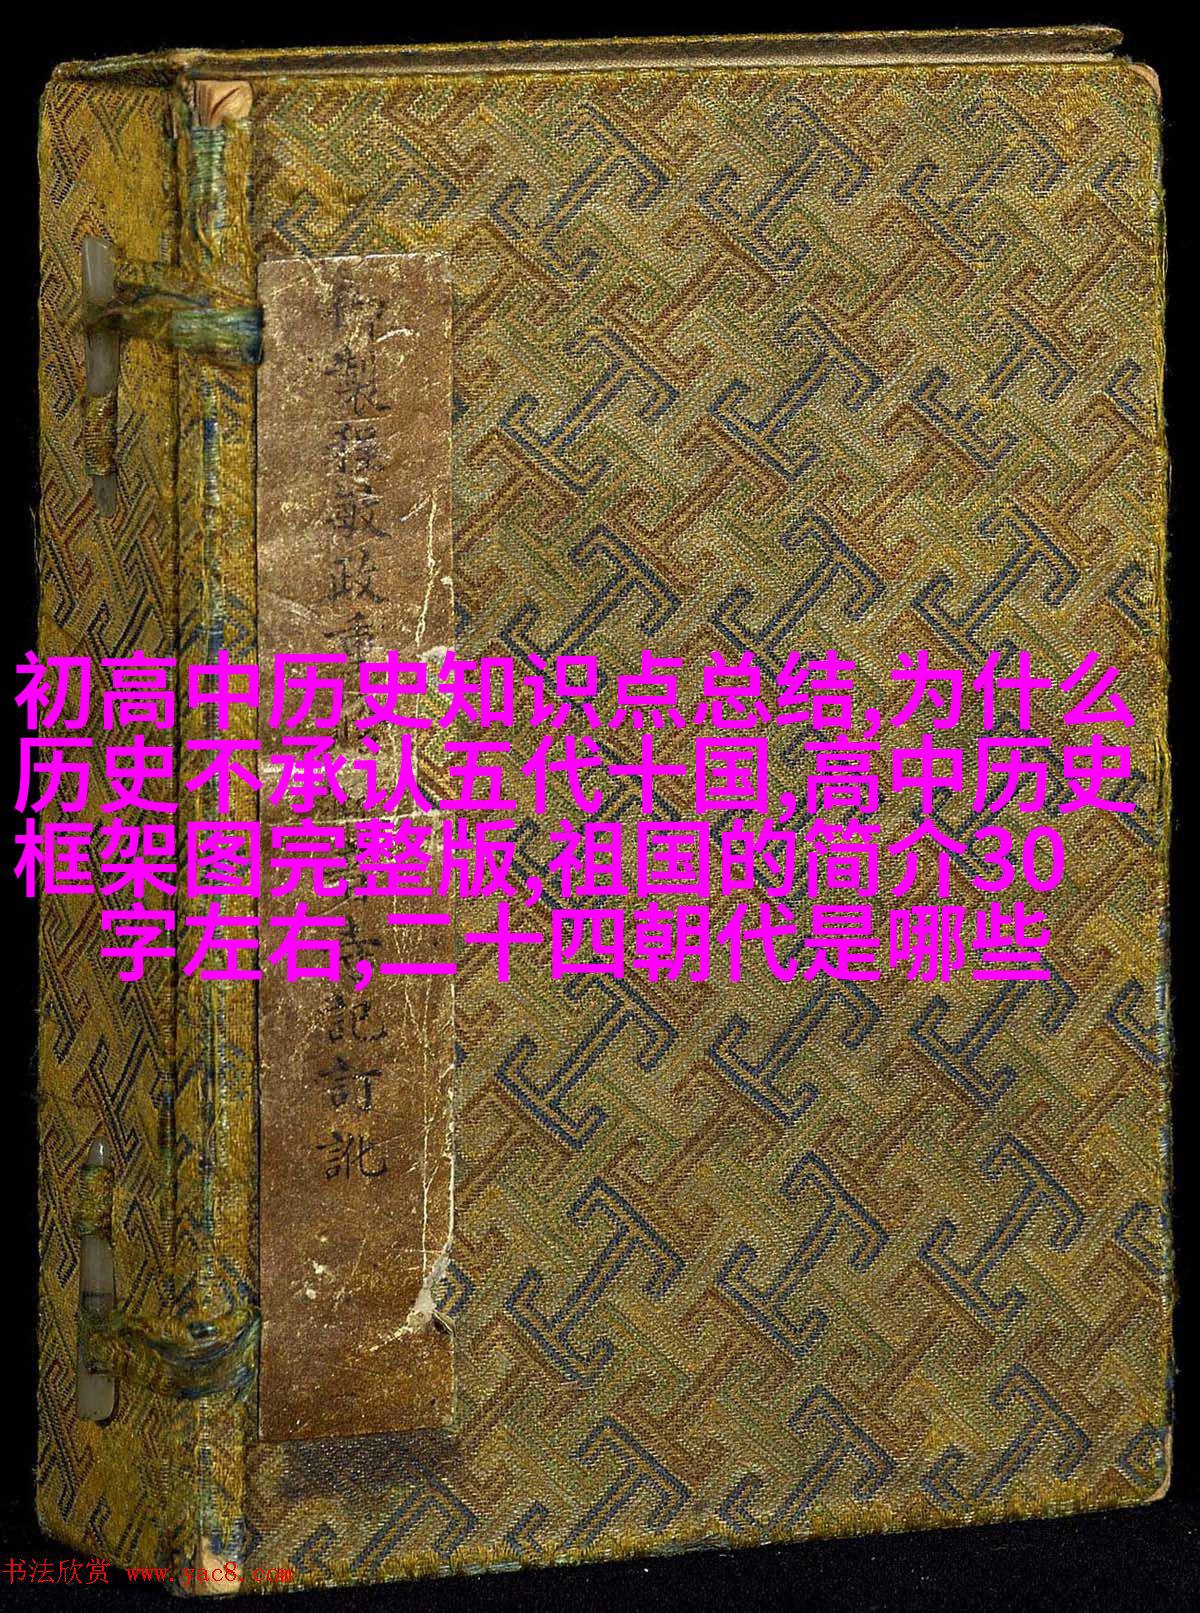 御製程敏政重
記訂訛
初高中历史知识点总结,为什么
历史不承认五代十国,高中历史
框架图完整版,祖国的简介30
字左右,二十四朝代是哪些
书法欣赏 www.yac8.com